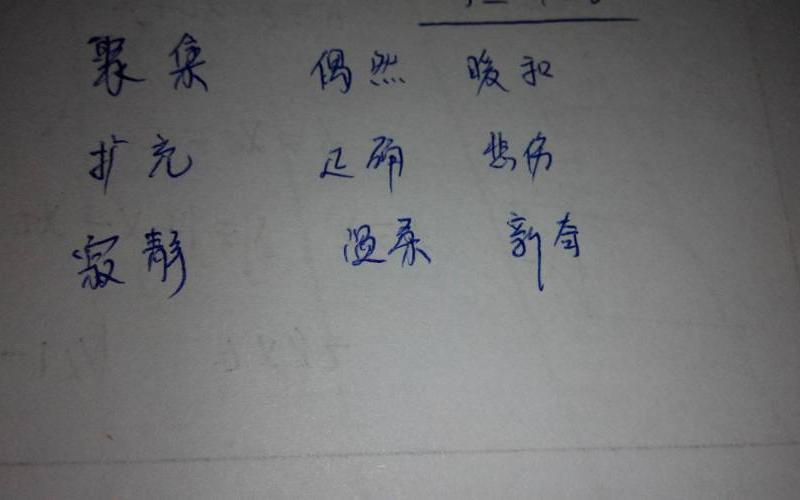 聚集 偶然 暖和
扩充 正确 悲伤
寂静 温柔 新奇